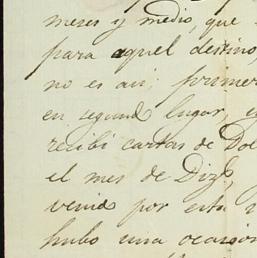 meses y medio, que
para aquel destino,
no es asi; primer
en segundo lugar, e
recibí cartas de Do
el mes de Dize,
venido por esta
hubo una ocasion